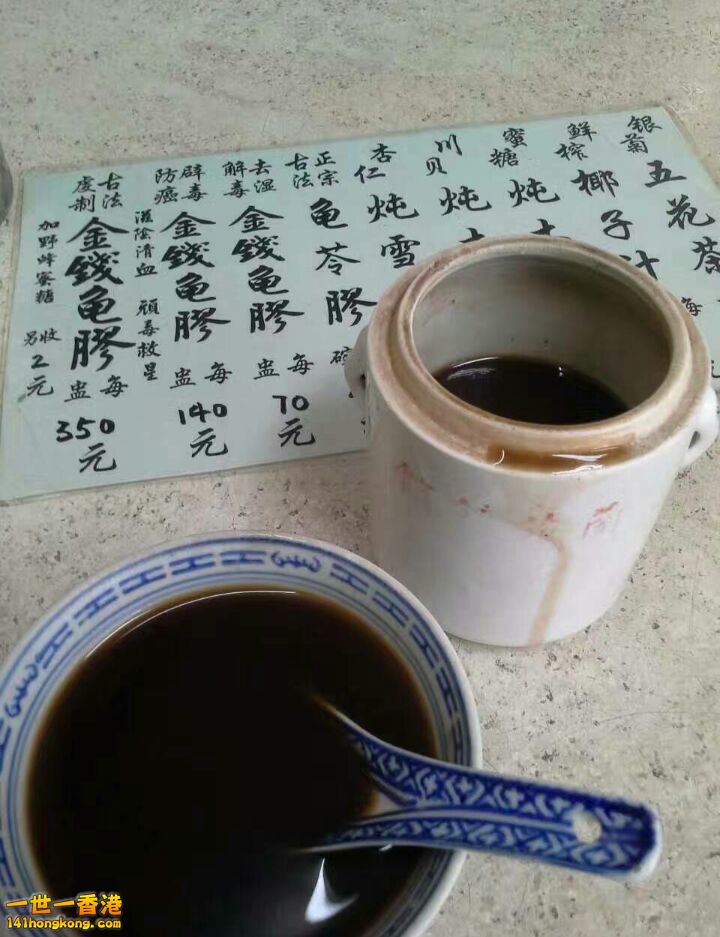 銀菊五花茶
鮮榨椰子汁
蜜糖炖
川貝炖
杏仁炖雪
正宗古法龜苓膠
去湿解毒金錢龜膠每盅70元
辟毒防癌金錢龜膠每盅140元
滋陰清血 頑毒救星
古法虔制金錢龜膠每盅350元
加野蜂蜜糖 另收2元
一世一香港
141hongkong.com